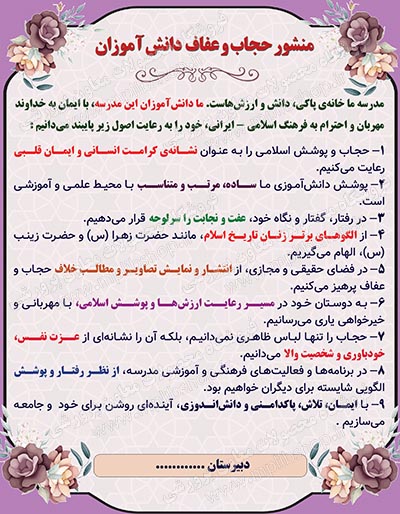 منشور حجاب و عفاف دانش آموزان
مدرسه ما خانه‌ی پاکی، دانش و ارزش‌هاست. ما دانش‌آموزان این مدرسه، با ایمان به خداوند
مهربان و احترام به فرهنگ اسلامی – ایرانی، خود را به رعایت اصول زیر پایبند می‌دانیم :
۱– حجاب و پوشش اسلامی را به عنوان نشانه‌ی کرامت انسانی و ایمان قلبی
رعایت می‌کنیم.
۲– پوشش دانش‌آموزی ما ساده، مرتب و متناسب با محیط علمی و آموزشی
است.
۳– در رفتار، گفتار و نگاه خود، عفت و نجابت را سرلوحه قرار می‌دهیم.
۴– از الگوهای برتر زنان تاریخ اسلام، مانند حضرت زهرا (س) و حضرت زینب
(س)، الهام می‌گیریم.
۵– در فضای حقیقی و مجازی، از انتشار و نمایش تصاویر و مطالب خلاف حجاب و
عفاف پرهیز می‌کنیم.
۶– به دوستان خود در مسیر رعایت ارزش‌ها و پوشش اسلامی، با مهربانی و
خیرخواهی یاری می‌رسانیم.
۷– حجاب را تنها لباس ظاهری نمی‌دانیم، بلکه آن را نشانه‌ای از عزت نفس،
خودباوری و شخصیت والا می‌دانیم.
۸– در برنامه‌ها و فعالیت‌های فرهنگی و آموزشی مدرسه، از نظر رفتار و پوشش
الگویی شایسته برای دیگران خواهیم بود.
۹– با ایمان، تلاش، پاکدامنی و دانش‌اندوزی، آینده‌ای روشن برای خود و جامعه
می‌سازیم .
دبیرستان ............